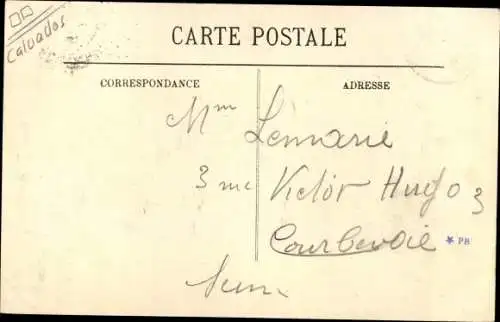 Calvados
CARTE POSTALE
CORRESPONDANCE
ADRESSE
Mme Lemarie
3 rue Victor Hugo 3
Courbevoie
* PB
Seine